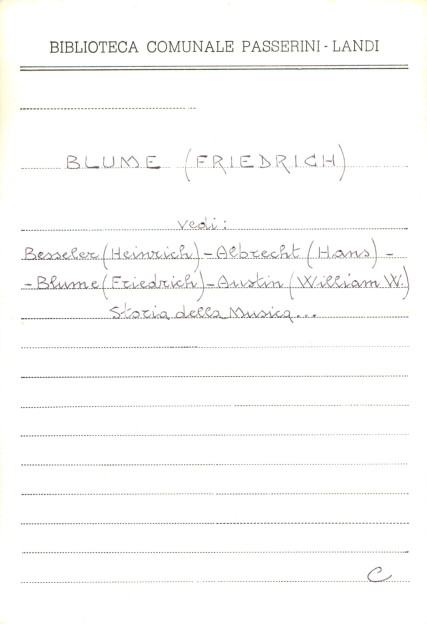 BIBLIOTECA COMUNALE PASSERINI - LANDI
BLUME (FRIEDRICH)
vedi:
Besseler (Heinrich) - Albrecht (Hans) -
- Blume (Friedrich) - Austin (William W.)
Storia della Musica...
C